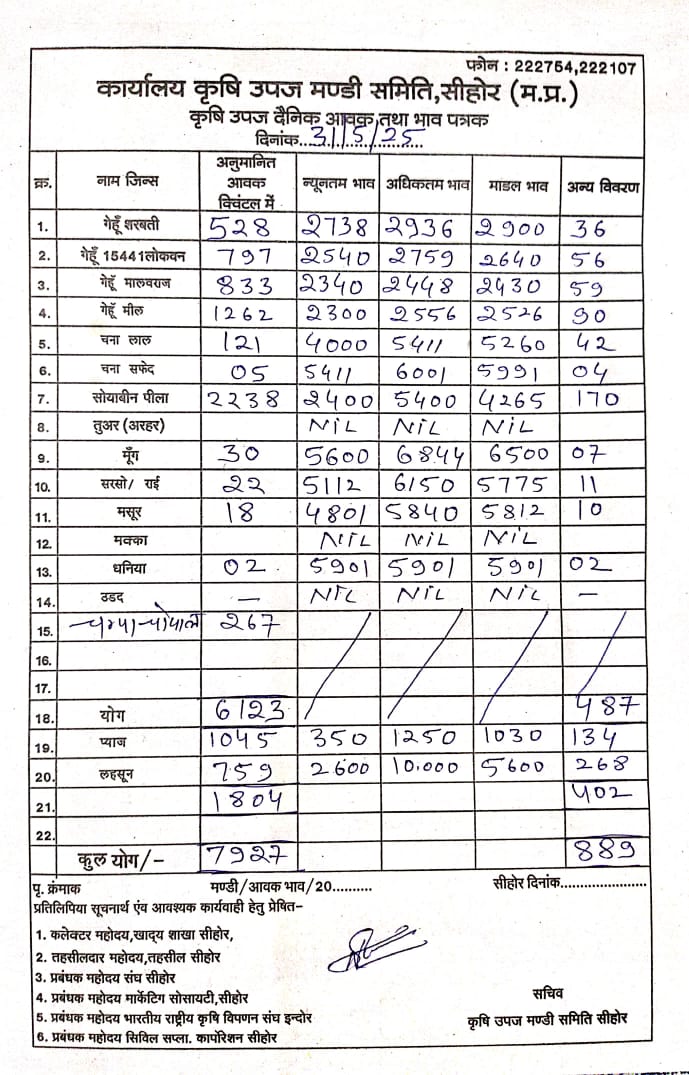 फोन : 222754,222107
कार्यालय कृषि उपज मण्डी समिति,सीहोर (म.प्र.)
कृषि उपज दैनिक आवक तथा भाव पत्रक
दिनांक...31/5/25...
क्र. नाम जिन्स अनुमानित आवक क्विंटल में न्यूनतम भाव अधिकतम भाव माडल भाव अन्य विवरण
1. गेहूँ शरबती 528 2738 2936 2900 36
2. गेहूँ 15441लोकवन 797 2540 2759 2640 56
3. गेहूँ मालवराज 833 2340 2448 2430 59
4. गेहूँ मील 1262 2300 2556 2526 90
5. चना लाल 121 4000 5411 5260 42
6. चना सफेद 05 5411 6001 5991 04
7. सोयाबीन पीला 2238 2400 5400 4265 170
8. तुअर (अरहर) NiL NiL NiL
9. मूँग 30 5600 6844 6500 07
10. सरसो/ राई 22 5112 6150 5775 11
11. मसूर 18 4801 5840 5812 10
12. मक्का NiL NiL NiL
13. धनिया 02 5901 5901 5901 02
14. उडद — NiL NiL NiL —
15. 267
16.
17.
18. योग 6123 487
19. प्याज 1045 350 1250 1030 134
20. लहसून 759 2600 10.000 5600 268
21. 1804 402
22.
कुल योग/- 7927 889
पृ. क्रंमाक मण्डी/आवक भाव/20.......... सीहोर दिनांक......................
प्रतिलिपिया सूचनार्थ एंव आवश्यक कार्यवाही हेतु प्रेषित-
1. कलेक्टर महोदय,खाद्य शाखा सीहोर,
2. तहसीलदार महोदय,तहसील सीहोर
3. प्रबंधक महोदय संघ सीहोर
4. प्रबंधक महोदय मार्केटिग सोसायटी,सीहोर
सचिव
5. प्रबंधक महोदय भारतीय राष्ट्रीय कृषि विपणन संघ इन्दोर
कृषि उपज मण्डी समिति सीहोर
6. प्रबंधक महोदय सिविल सप्ला. कार्पोरेशन सीहोर